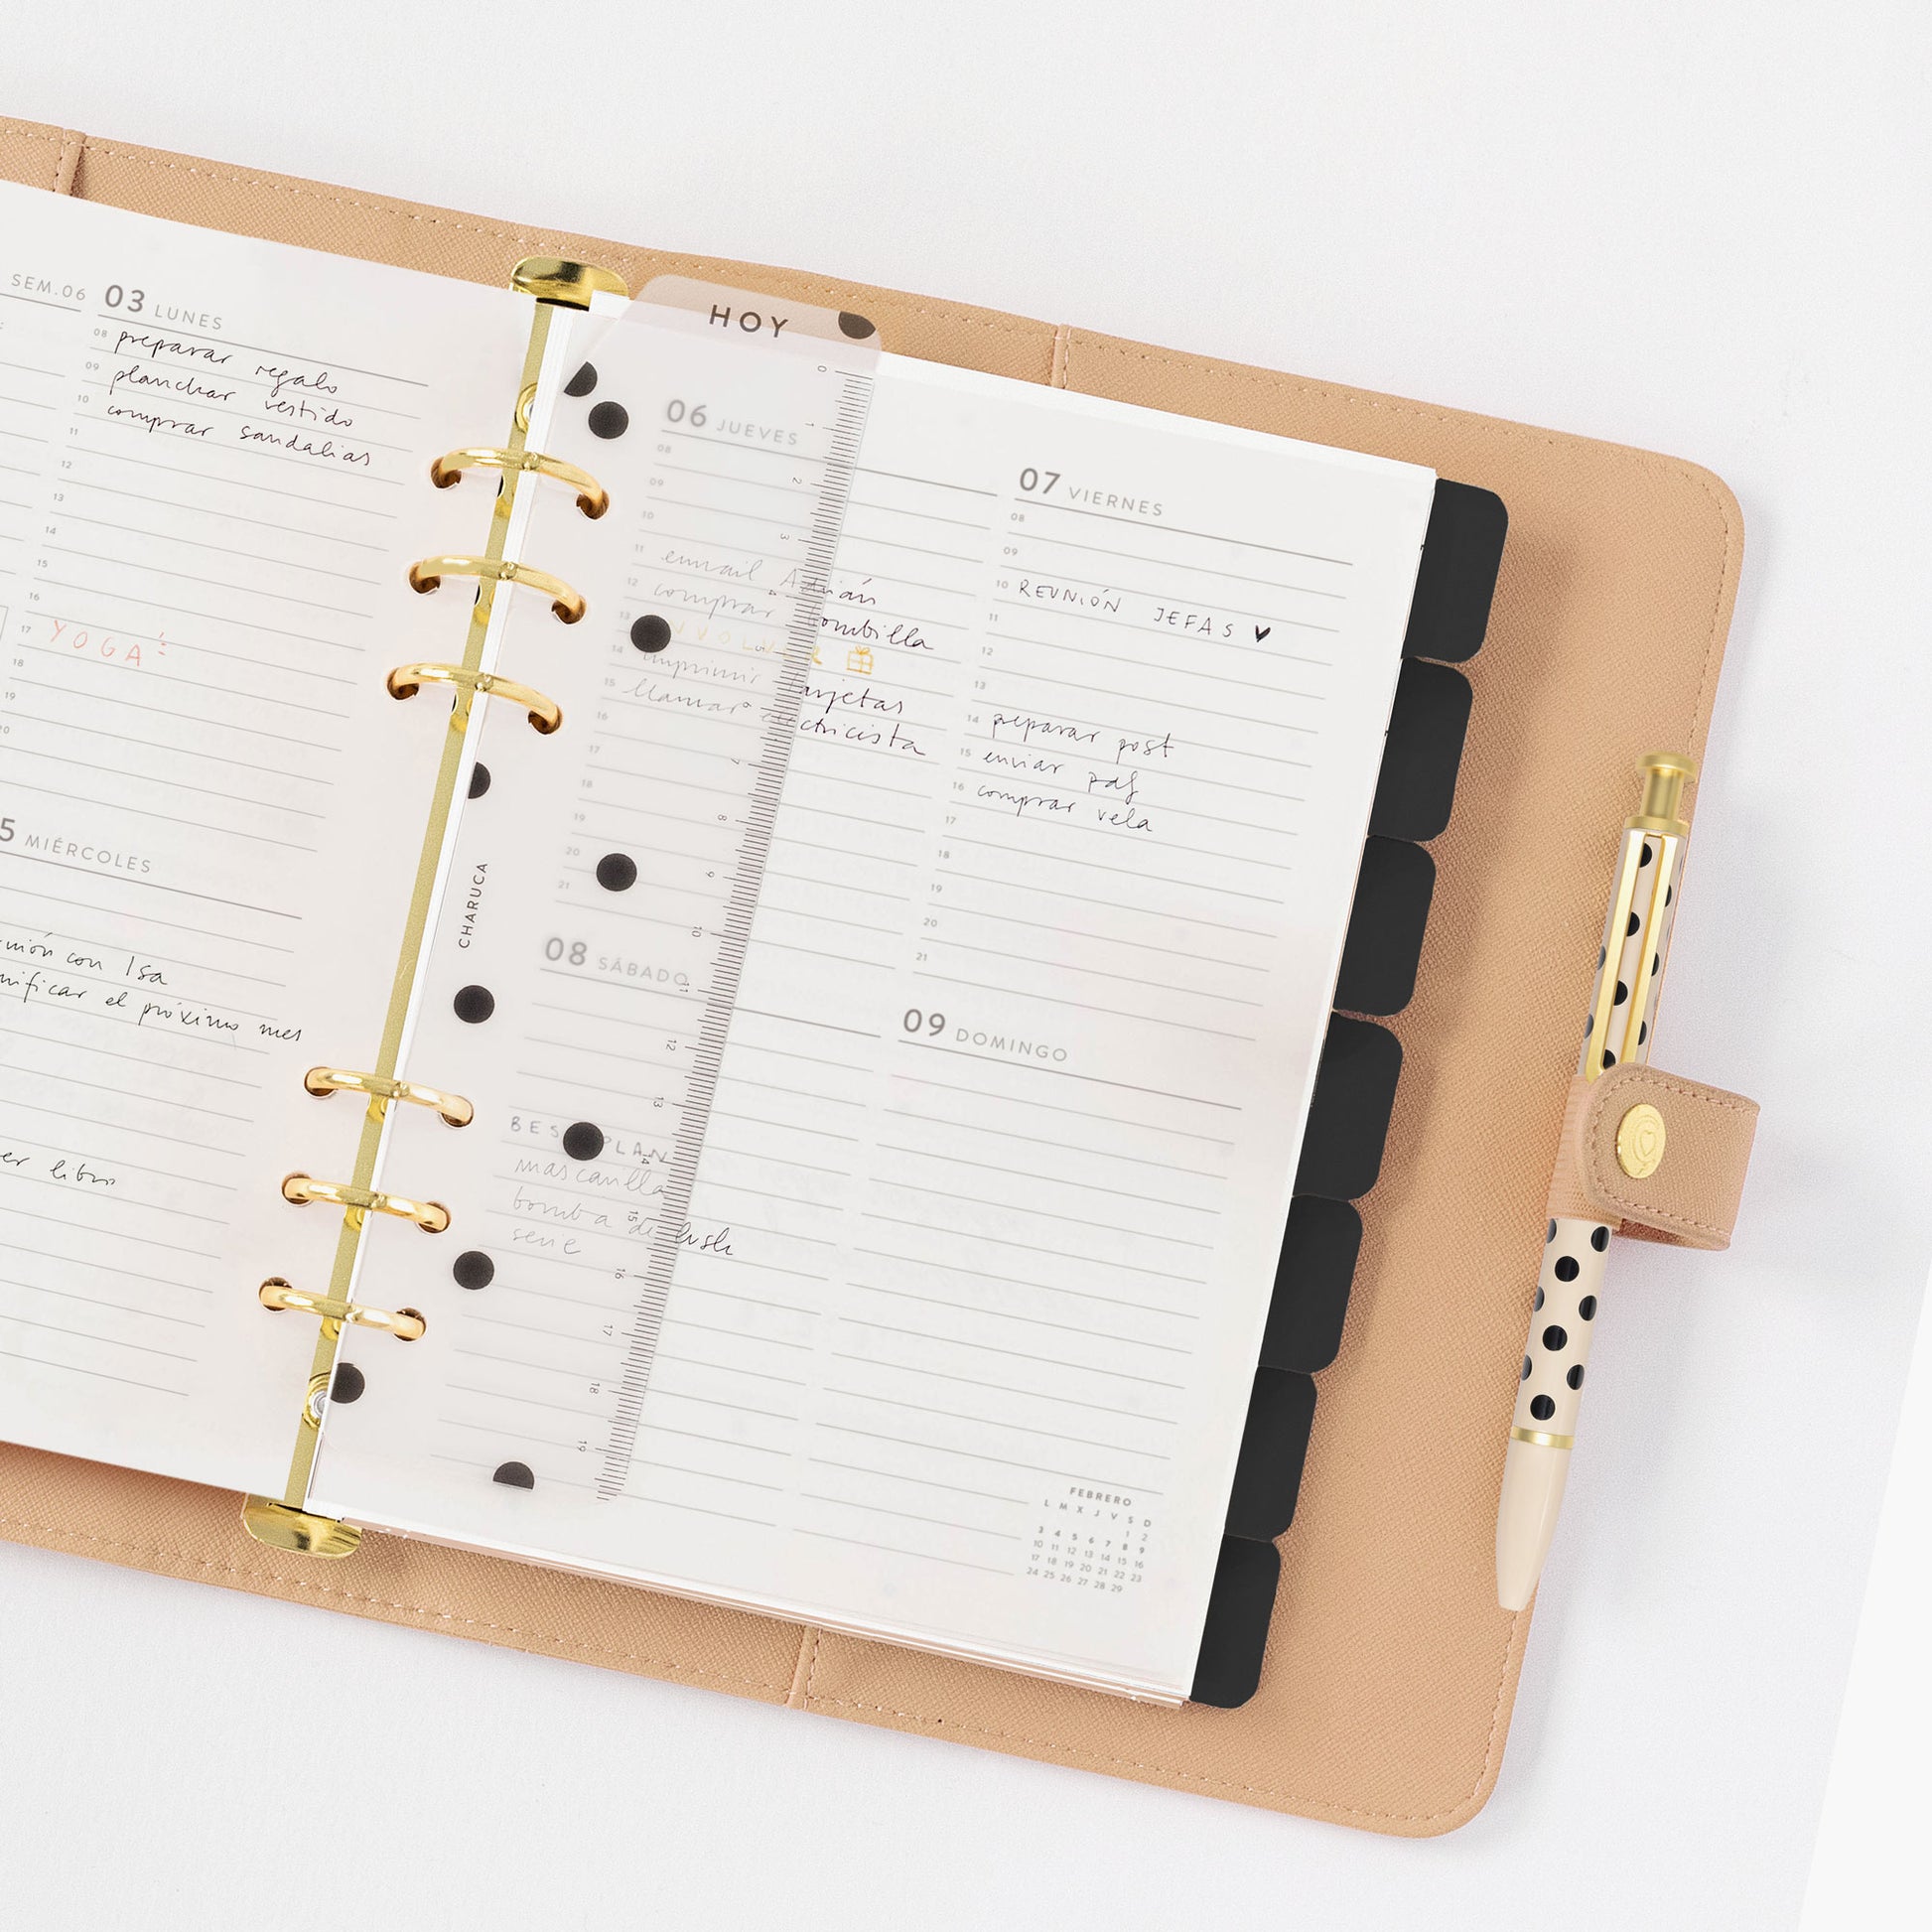 SEM.06
03 LUNES
08 preparar regalo
09 planchar vestido
10 comprar sandalias
11
12
13
14
15
16
17 YOGA
18
19
20
5 MIÉRCOLES
nión con Isa
nificar el próximo mes
er libro
CHARUCA
HOY
0
1
2
3
4
5
7
8
9
10
11
12
13
14
15
16
17
18
19
06 JUEVES
08
09
10
11 email Adrián
12 comprar bombilla
13 NVOLVER
14 imprimir tarjetas
15 llamar electricista
16
17
18
19
20
21
07 VIERNES
08
09
10 REUNIÓN JEFAS ♥
11
12
13
14 preparar post
15 enviar pdf
16 comprar vela
17
18
19
20
21
08 SÁBADO
BEST PLAN
mascarilla
bomba de lush
serie
09 DOMINGO
FEBRERO
L M X J V S D
1 2
3 4 5 6 7 8 9
10 11 12 13 14 15 16
17 18 19 20 21 22 23
24 25 26 27 28 29